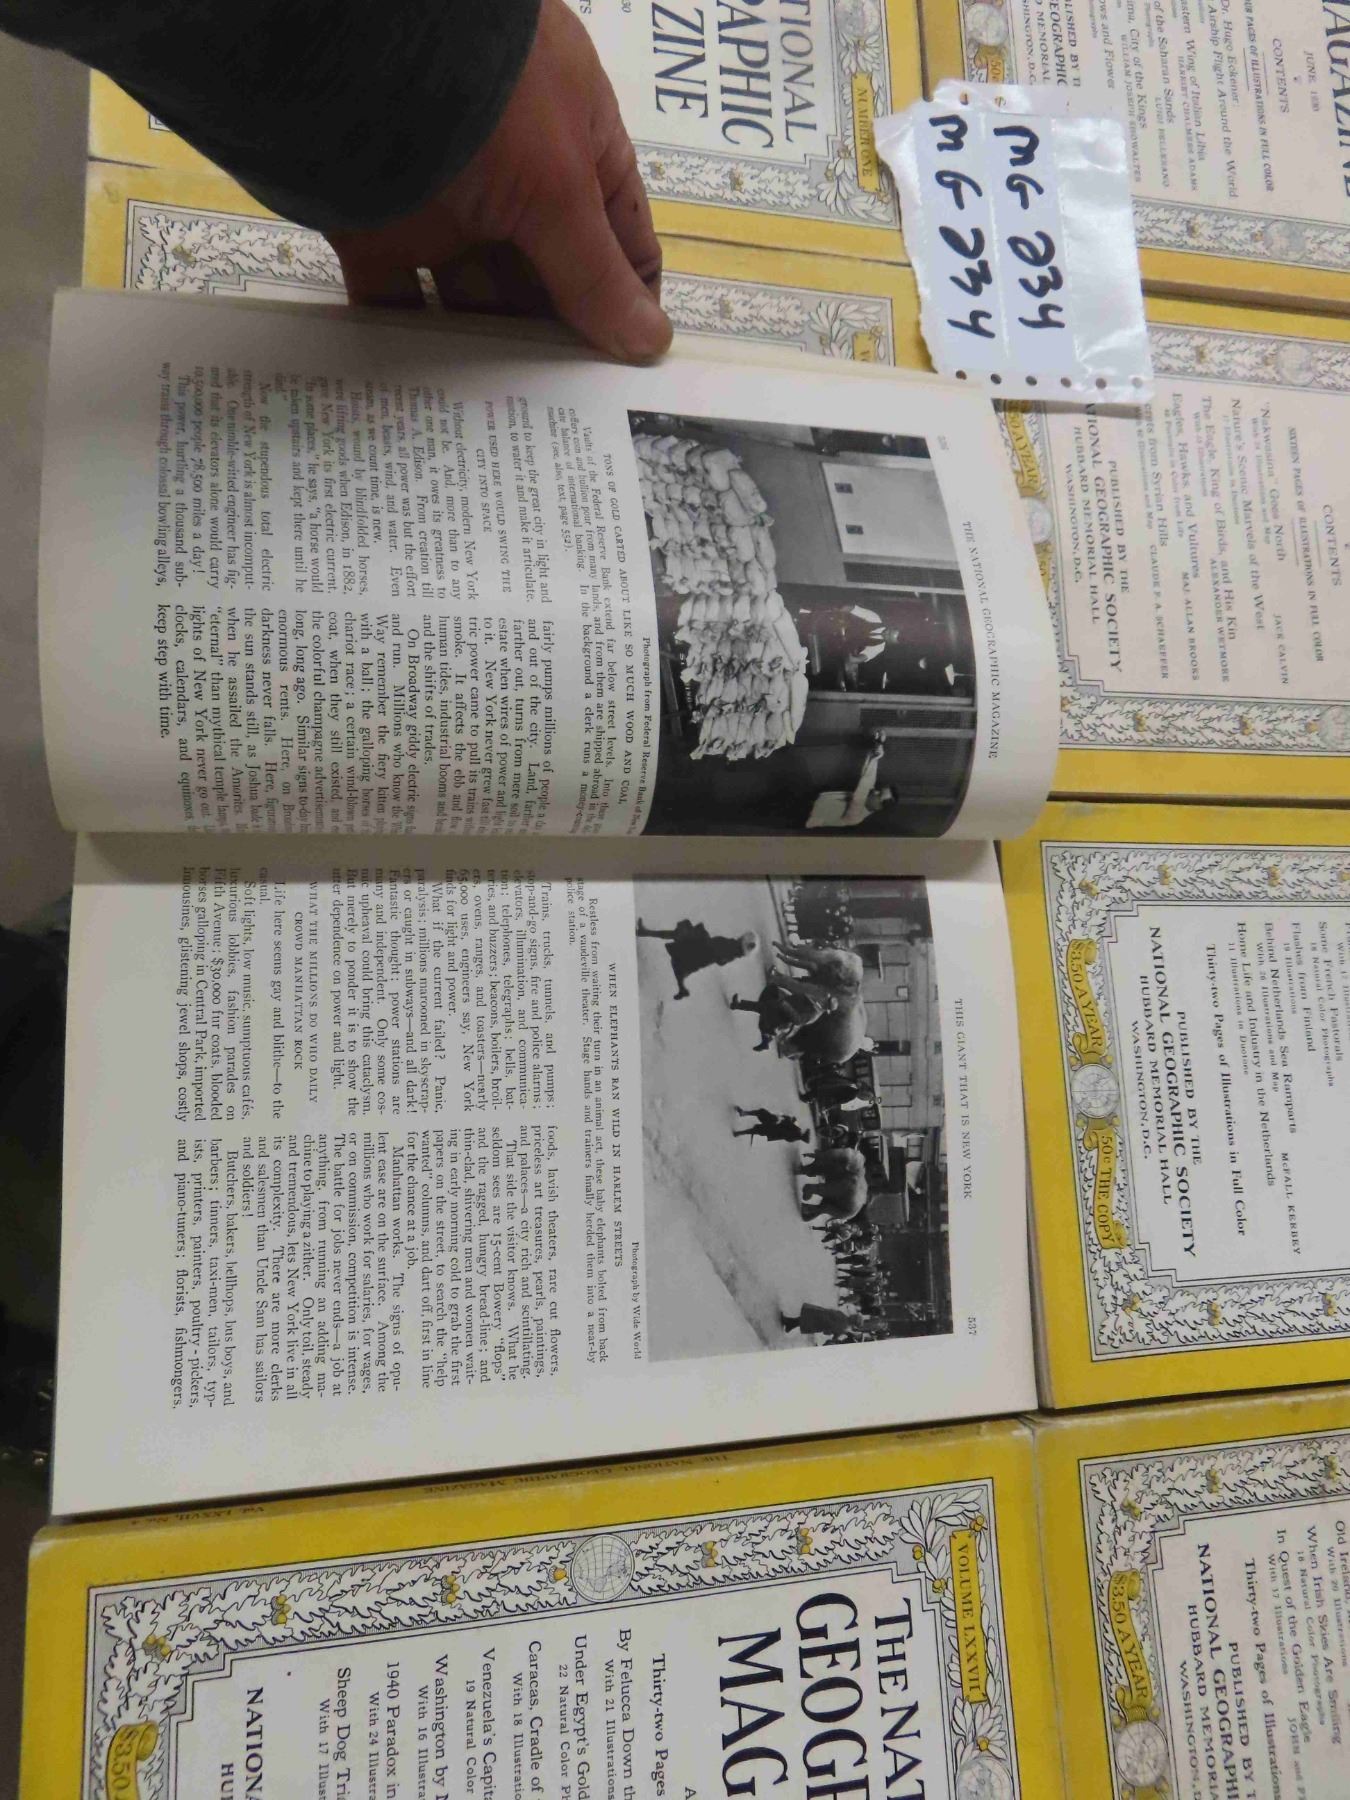 MG 234
MG 234
THE NATIONAL GEOGRAPHIC MAGAZINE
Photograph from Federal Reserve Bank of New
TONS OF GOLD CARTED ABOUT LIKE SO MUCH WOOD AND COAL
Vaults of the Federal Reserve Bank extend far below street levels. Into these
coffers coin and bullion pour from many lands, and from them are shipped abroad in the
cate balance of international banking. In the background a clerk runs a money-counting
machine (see, also, text, page 552).
ground to keep the great city in light and
motion, to water it and make it articulate.
POWER USED HERE WOULD SWING THE
CITY INTO SPACE
Without electricity, modern New York
could not be. And, more than to any
other one man, it owes its greatness to
Thomas A. Edison. From creation till
recent years, all power was but the effort
of men, beasts, wind, and water. Even
steam, as we count time, is new.
Hoists, wound by blindfolded horses,
were lifting goods when Edison, in 1882,
gave New York its first electric current.
"In some places," he says, "a horse would
be taken upstairs and kept there until he
died."
Now the stupendous total electric
strength of New York is almost incomput-
able. One nimble-witted engineer has fig-
ured that its elevators alone would carry
10,500,000 people 78,500 miles a day!
This power, hurtling a thousand sub-
way trains through colossal bowling alleys,
fairly pumps millions of people a day
and out of the city. Land, farther and
farther out, turns from mere soil to
estate when wires of power and light
to it. New York never grew fast till
tric power came to pull its trains
smoke. It affects the ebb and flow
human tides, industrial booms and
and the shifts of trades.
On Broadway giddy electric signs
and run. Millions who know the
Way remember the fiery kitten
with a ball; the galloping horses of
chariot race; a certain wind-blown
coat, when they still existed, and
the colorful champagne advertisements
long, long ago. Similar signs to-day
enormous rents. Here, on
darkness never falls. Here, figuratively
the sun stands still, as Joshua bade it
when he assailed the Amorites.
"eternal" than mythical temple lamps
lights of New York never go out.
clocks, calendars, and equinoxes
keep step with time.
THIS GIANT THAT IS NEW YORK
537
Photograph by Wide World
WHEN ELEPHANTS RAN WILD IN HARLEM STREETS
Restless from waiting their turn in an animal act, these baby elephants bolted from back
stage of a vaudeville theater. Stage hands and trainers finally herded them into a near-by
police station.
Trains, trucks, tunnels, and pumps;
stop-and-go signs, fire and police alarms;
elevators, illumination, and communica-
tion; telephones, telegraphs; bells, bat-
teries, and buzzers; beacons, boilers, broil-
ers, ovens, ranges, and toasters—nearly
65,000 uses, engineers say, New York
finds for light and power.
What if the current failed? Panic,
paralysis; millions marooned in skyscrap-
ers or caught in subways—and all dark!
Fantastic thought; power stations are
many and independent. Only some cos-
mic upheaval could bring this cataclysm.
But merely to ponder it is to show the
utter dependence on power and light.
WHAT THE MILLIONS DO WHO DAILY
CROWD MANHATTAN ROCK
Life here seems gay and blithe—to the
casual.
Soft lights, low music, sumptuous cafés,
luxurious lobbies, fashion parades on
Fifth Avenue; $30,000 fur coats, blooded
horses galloping in Central Park, imported
limousines, glistening jewel shops, costly
foods, lavish theaters, rare cut flowers,
priceless art treasures, pearls, paintings,
and palaces—a city rich and scintillating.
That side the visitor knows. What he
seldom sees are 15-cent Bowery "flops"
and the ragged, hungry bread-line; and
thin-clad, shivering men and women wait-
ing in early morning cold to grab the first
papers on the street, to search the "help
wanted" columns, and dart off, first in line
for the chance at a job.
Manhattan works. The signs of opu-
lent ease are on the surface. Among the
millions who work for salaries, for wages,
or on commission, competition is intense.
The battle for jobs never ends—a job at
anything, from running an adding ma-
chine to playing a zither. Only toil, steady
and tremendous, lets New York live in all
its complexity. There are more clerks
and salesmen than Uncle Sam has sailors
and soldiers!
Butchers, bakers, bellhops, bus boys, and
barbers; tinners, taxi-men, tailors, typ-
ists, printers, painters, poultry-pickers,
and piano-tuners; florists, fishmongers,
TIONAL
APHIC
ZINE
NUMBER ONE
AGAZINE
JUNE, 1930
CONTENTS
Dr. Hugo Eckener:
Airship Flight Around the World
Eastern Wing of Italian Libia
HARRIET CHALMERS ADAMS
of the Saharan Sands
LUIGI PELLERANO
City of the Kings
WILLIAM JOSEPH SHOWALTER
ows and Flower
WASHINGTON, D.C.
CONTENTS
SIXTEEN PAGES OF ILLUSTRATIONS IN FULL COLOR
"Nakwasina" Goes North
JACK CALVIN
Nature's Scenic Marvels of the West
The Eagle, King of Birds, and His Kin
ALEXANDER WETMORE
Eagles, Hawks, and Vultures
MAJ. ALLAN BROOKS
Secrets from Syrian Hills
CLAUDE F. A. SCHAEFFER
PUBLISHED BY THE
NATIONAL GEOGRAPHIC SOCIETY
HUBBARD MEMORIAL HALL
WASHINGTON, D.C.
Some French Pastorals
18 Natural Color Photographs
Flashes from Finland
19 Illustrations
Behind Netherlands Sea Ramparts
McFALL KERBEY
With 26 Illustrations and Map
Home Life and Industry in the Netherlands
11 Illustrations in Duotone
Thirty-two Pages of Illustrations in Full Color
PUBLISHED BY THE
NATIONAL GEOGRAPHIC SOCIETY
HUBBARD MEMORIAL HALL
WASHINGTON, D.C.
$3.50 A YEAR
50c THE COPY
Old Ireland,
With 20 Illustrations
When Irish Skies Are Smiling
18 Natural Color Photographs
In Quest of the Golden Eagle
With 17 Illustrations
Thirty-two Pages of Illustrations
PUBLISHED BY T
NATIONAL GEOGRAPHIC
HUBBARD MEMORIA
WASHINGTON, D
$3.50 A YEAR
THE NATIONAL GEOGRAPHIC MAGAZINE
Vol. LXXVII, No. 4
VOLUME LXXVII
THE NAT
GEOGR
MAG
Thirty-two Pages
By Felucca Down th
With 21 Illustrations
Under Egypt's Gold
22 Natural Color Ph
Caracas, Cradle of
With 18 Illustratio
Venezuela's Capita
19 Natural Color
Washington by M
With 16 Illustra
1940 Paradox in
With 24 Illustra
Sheep Dog Tria
With 17 Illust
NATIONA
HUB
$3.50